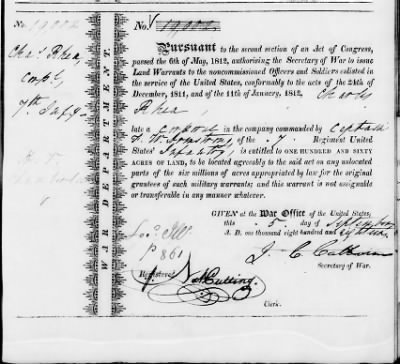 No. 19,002
No. 19,002
Chas. Rhea,
Corpl,
7th Infy
WAR DEPARTMENT.
Pursuant to the second section of an Act of Congress,
passed the 6th of May, 1812, authorising the Secretary of War to issue
Land Warrants to the noncommissioned Officers and Soldiers enlisted in
the service of the United States, conformably to the acts of the 24th of
December, 1811, and of the 11th of January, 1812, Charles
Rhea,
late a Corporal in the company commanded by Captain
of the 7 Regiment United
States' Infantry, is entitled to ONE HUNDRED AND SIXTY
ACRES OF LAND, to be located agreeably to the said act on any unlocated
parts of the six millions of acres appropriated by law for the original
grantees of such military warrants; and this warrant is not assignable
or transferable in any manner whatever.
GIVEN at the War Office of the United States,
this 5 day of September
A. D. one thousand eight hundred and eighteen.
P 861
J. C. Calhoun
Secretary of War.
Registered
Cutting.
Clerk.